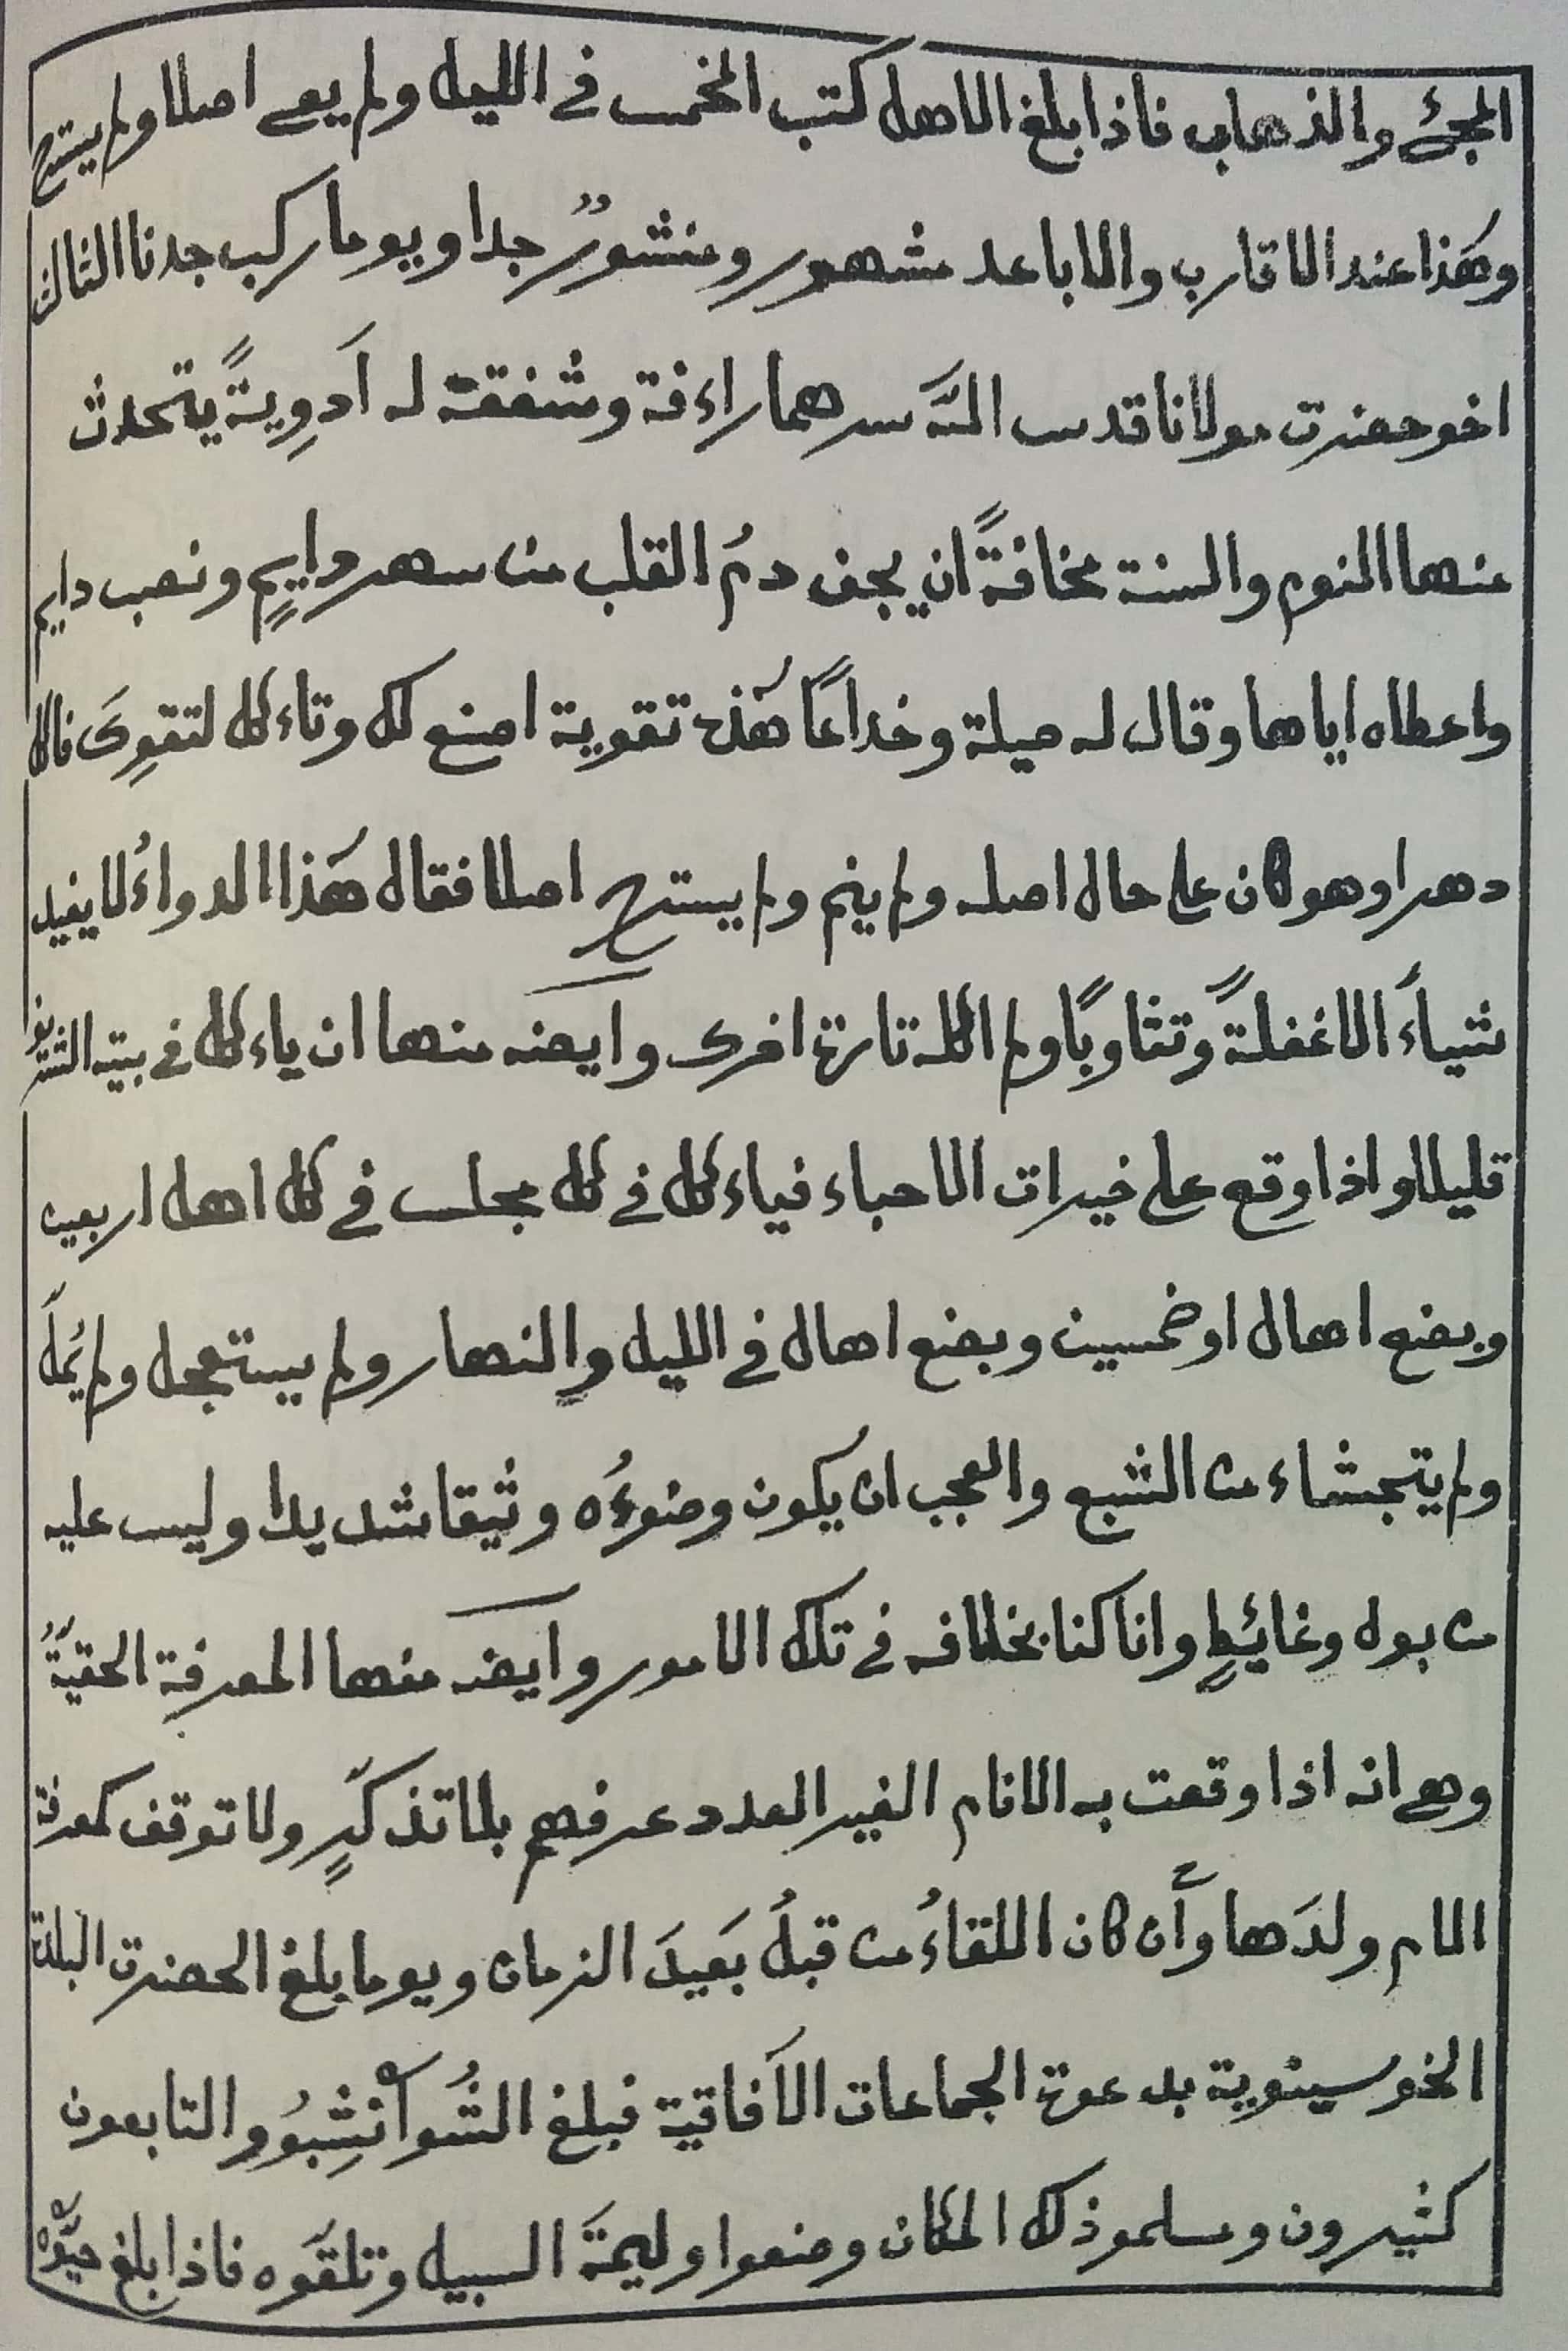 المجئ والذهاب فاذا بلغ الاهل كتب الخمس في الليل ولم يعي اصلا ولم يسترح
وهٰذا عند الاقارب والاباعد مشهور ومنشورٌ جدا ويوما ركب جدنا الثالث
اخو حضرت مولانا قدس اللّه سرهما راءفة وشفقة له اَدوِيةً يتحدث
منها النوم والسنة مخافةً ان يجف دمُ القلب من سهر دايمٍ ونصب دايم
واعطاه اياها وقال له حيلة وخداعًا هٰذه تقوية اصنع لك وتاءكل لتقوِىَ فاكل
دهرا وهو كان على حال اصله ولم ينم ولم يسترح اصلا فقال هٰذا الدواءُ لا يفيد
شياءَ الا غفلةً وتثاوبًا ولم اكله تارة اخرى وايضه منها ان ياءكل في بيته الشريف
قليلا واذا وقع على خيرات الاحباء فياءكل في كل مجلس في كل اهل اربعين
وبضع اهال او خمسين وبضع اهال في الليل والنهار ولم يستعجل ولم يُملَّ
ولم يتجشاء من الشبع والعجب ان يكون وضوءُه وثيقا شديدا وليس عليه
من بول وغائِطٍ وانا كنا بخلافه في تلك الامور وايضه منها المعرفة الحقيّةُ
وهي انه اذا وقعت به الانام الغير العدد عرفهم بلا تذكّرٍ ولا توقف كمعرفة
الام ولدَها وأن كان اللقاءُ من قبلُ بَعيدَ الزمان ويوما بلغ الحضرت البلدة
الخوسينوية بدعوة الجماعات الاَفاقية فبلغ الشُوأنْشِبُوُ والتابعون
كثيرون وسلموذلك المكان وصنعوا وليمةَ السبيل وتلقَوه فاذا بلغ